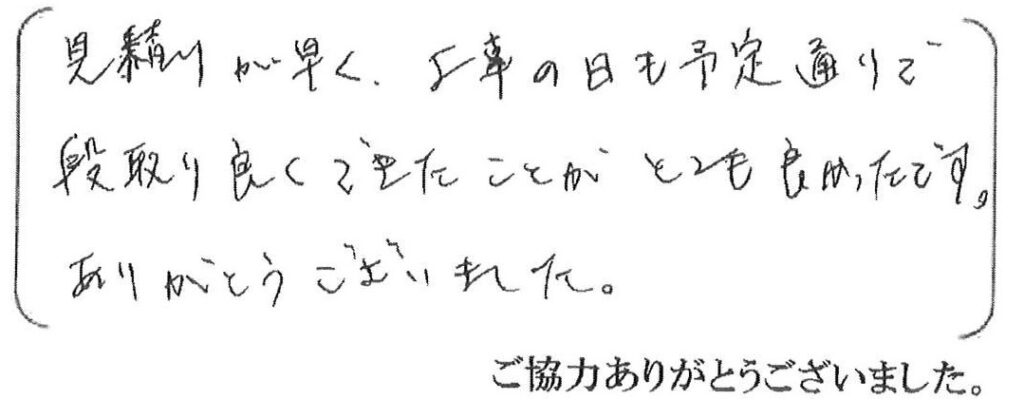 見積りが早く、工事の日も予定通りで
段取り良くできたことがとても良かったです。
ありがとうございました。
ご協力ありがとうございました。